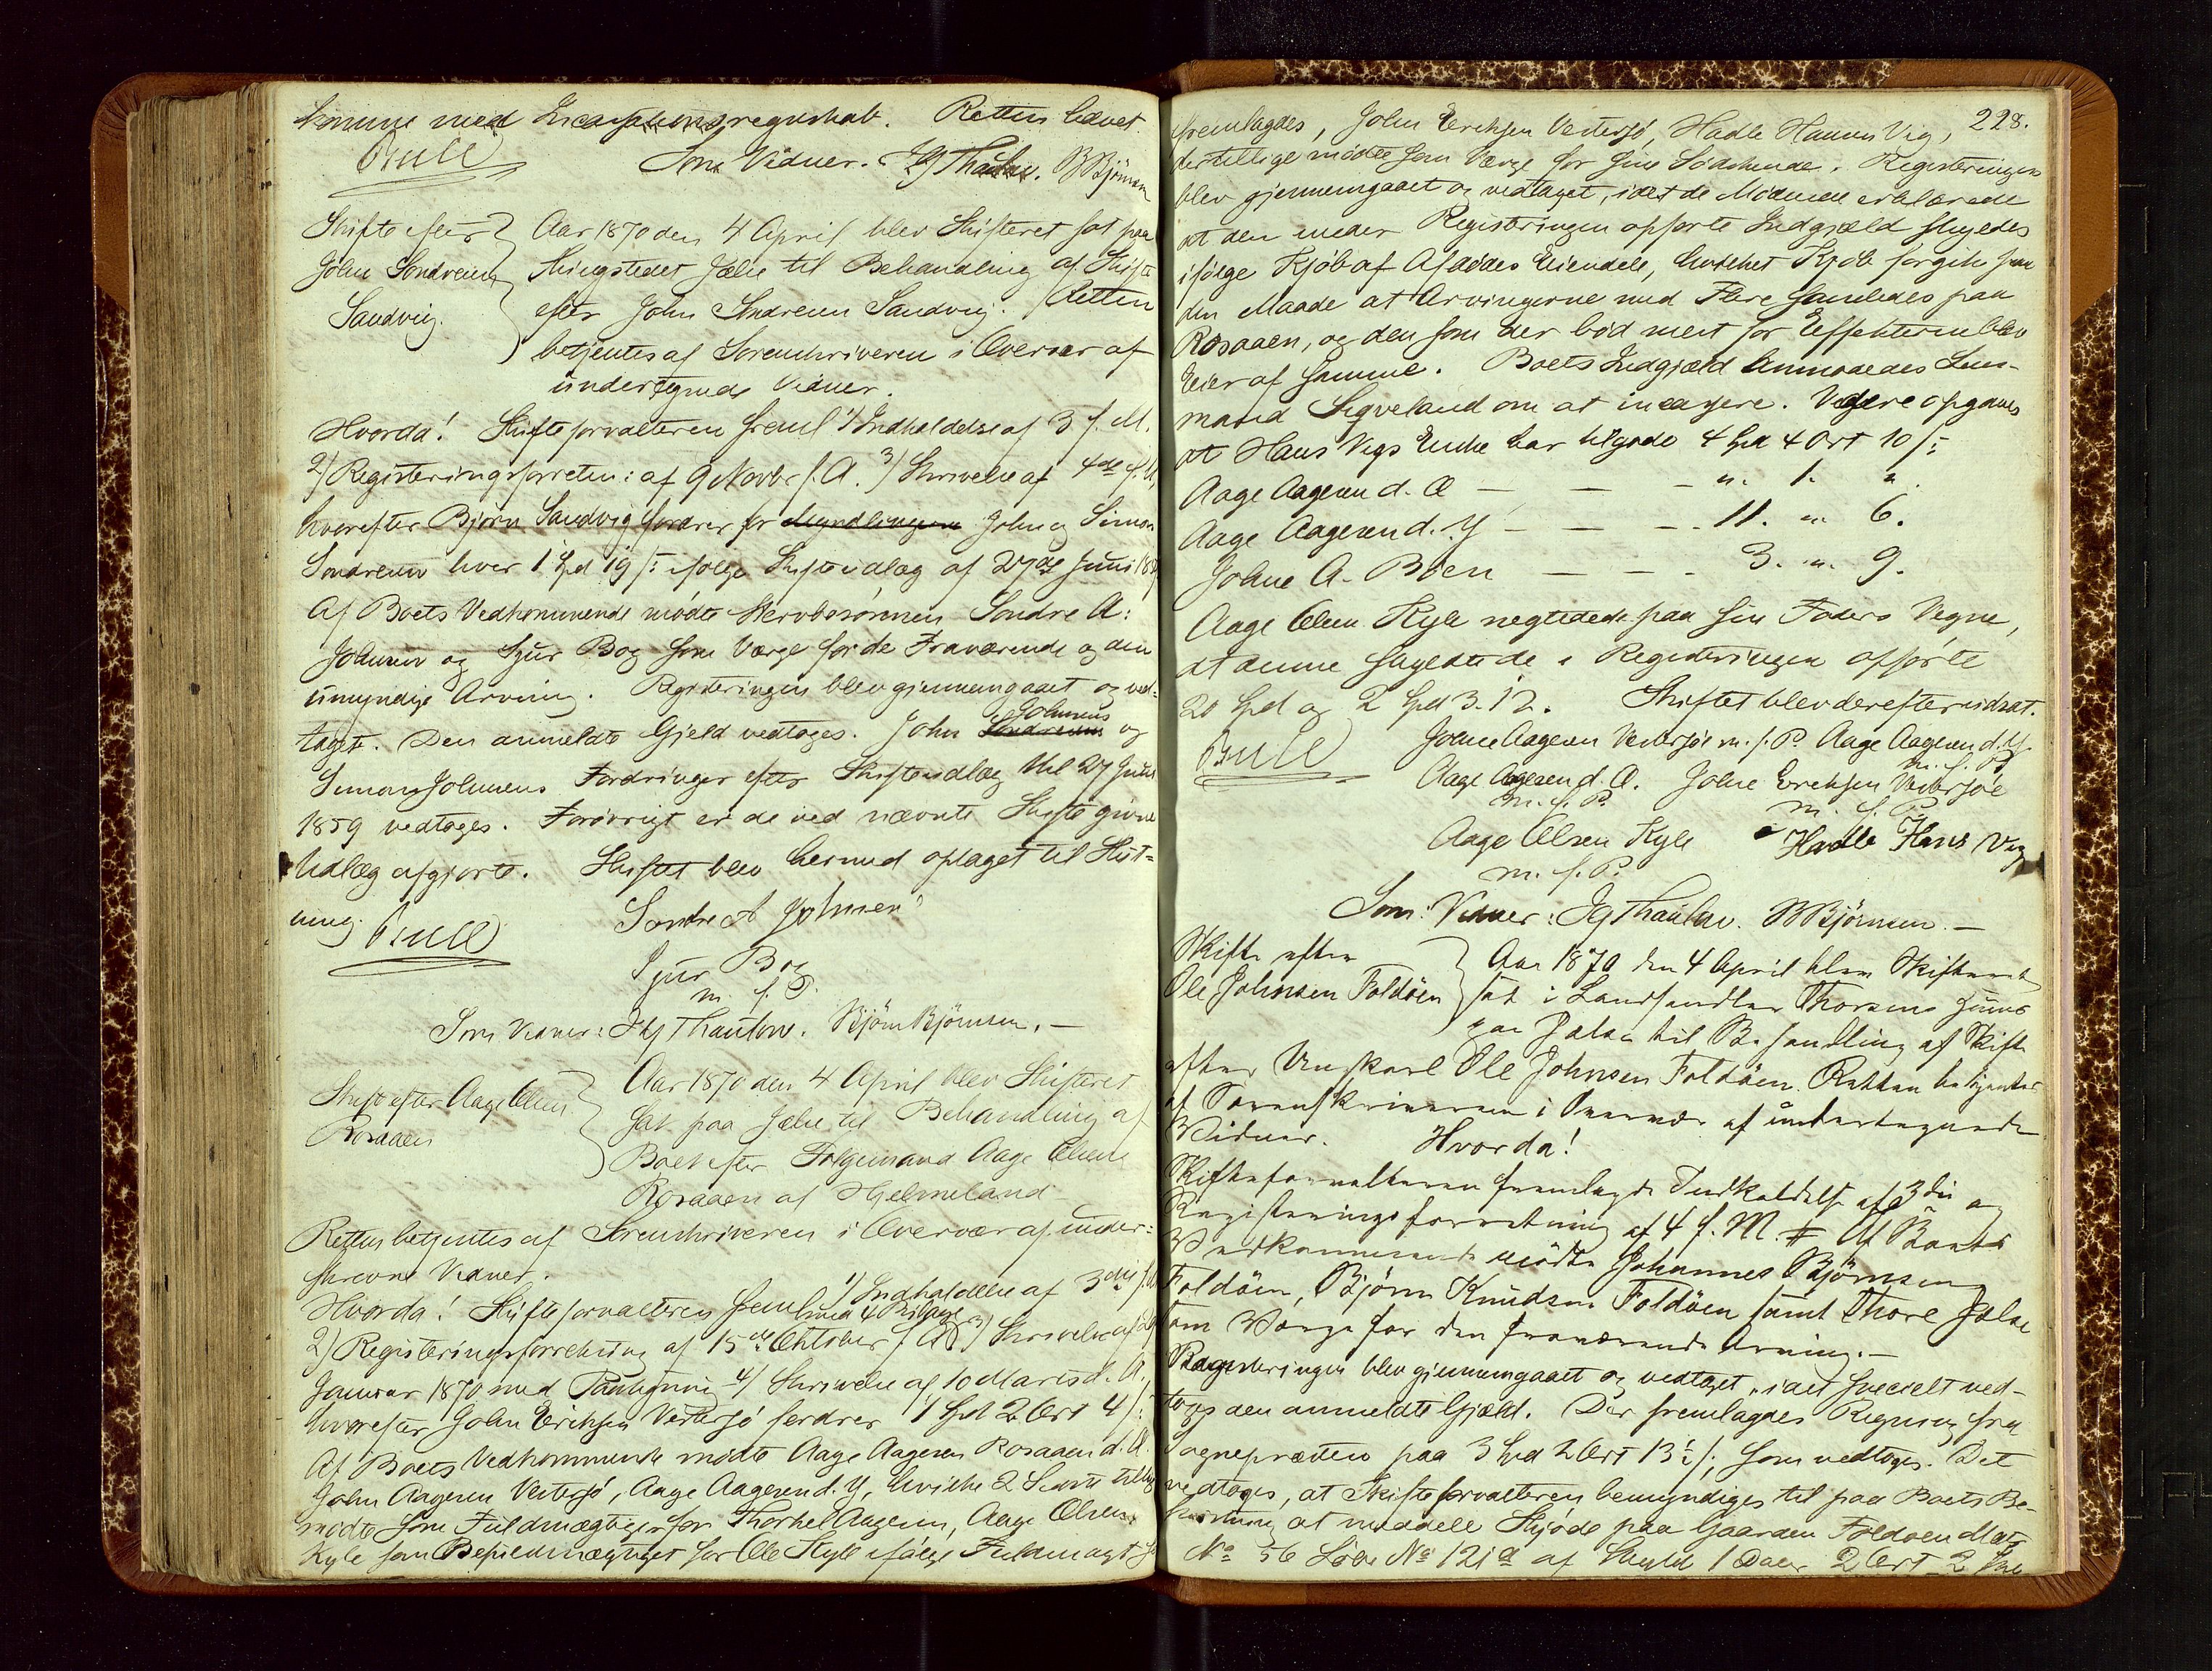 komme med Incassationsregnskab. Retten hævet.
Bull Som Vidner. HG Thaulow. B Bjørnsen
Skifte efter
John Sondresen
Sandvig.
Aar 1870 den 4 April blev Skifteret sat paa
Thingstedet Jælse til Behandling af Skifte
efter John Sondresen Sandvig. Retten
betjentes af Sorenskriveren i Overvær af
undertegnede Vidner.
Hvorda! Skifteforvalteren freml 1) Indkaldelse af 3 f. M.
2) Registeringsforretn: af 9 Novbr f. A. 3) Skrivelse af 4de f. M,
hvorefter Bjørn Sandvig fordrer for Myndlingene John og Simon
Sondresen hver 1 Spd 19 s: ifølge Skifteudlæg af 27de Juni 1859
Af Boets Vedkommende mødte Stervbosønnen Sondre A:
Johnsen og Sjur Bog som Værge for de Fraværende og den
umyndige Arving. Registeringen blev gjennemgaaet og ved-
taget. Den anmeldte Gjeld vedtoges. John Sondresens Johnsens og
Simon Johnsens Fordringer efter Skifteudlæg til 27 Juni
1859 vedtoges. Forøvrigt er de ved nævnte Skifte givne
Udlæg afgjorte. Skiftet blev hermed optaget til Slut-
ning. Bull Sondre A Johnsen
Sjur Bog
m. f. P.
Som Vidner: HG Thaulow. Bjørn Bjørnsen. —
Skifte efter Aage Olsen
Rosaaen
Aar 1870 den 4 April blev Skifteret
sat paa Jælse til Behandling af
Boet efter Følgemand Aage Olsen
Rosaaen af Hjelmeland
Retten betjentes af Sorenskriveren i Overvær af under-
skrevne Vidner.
Hvorda! Skifteforvalteren freml 1) Indkaldelse af 3die f. M
2) Registeringsforretning af 15de Oktober f. A (med 4 Bilage) 3) Skrivelse af
Januar 1870 med Paategning 4) Skrivelse af 10 Marts d. A.,
hvorefter John Eriksen Vestersjø fordrer 1 Spd 2 Ort 4 s:
Af Boets Vedkommende mødte Aage Aagesen Rosaaen d. Æ.
John Aagesen Vestersjø, Aage Aagesen d. Y, hvilke 2 Sidste tillige
mødte som Fuldmægtiger for Thorkel Aagesen, Aage Olsen
Kyle som Befuldmægtiget for Ole Kyle ifølge Fuldmagt
228.
fremlagdes, John Eriksen Vestersjø, Hadle Hansen Vig,
der tillige mødte som Værge for sine Sødskende. Registeringen
blev gjennemgaaet og vedtaget, idet de Mødende erklærede
at den under Registeringen opførte Indgjæld skyldes
ifølge Kjøb af Afdødes Eiendele, hvilket Kjøb foregik paa
den Maade at Arvingerne med Flere samledes paa
Rosaaen, og den som der bød mest for Effekterne blev
Eier af samme. Boets Indgjæld anmodedes Lens-
mand Sigveland om at incassere. Videre opgaves
at Hans Vigs Enke har tilgode 4 Spd 4 Ort 10 s:
Aage Aagesen d. Æ — — - „. 1. „.
Aage Aagesen d. Y — — - 11. „ 6.
Johne A. Bøen — — - 3. „. 9.
Aage Olsen Kyle negtede paa sin Faders Vegne,
at denne skyldte de i Registeringen opførte
20 Spd og 2 Spd 3. 12. Skiftet blev derefter udsat.
Bull Johne Aagesen Vestersjø m. f. P. Aage Aagesen d. Y.
m. f. P.
Aage Aagesen d. Æ. Johne Eriksen Vestersjøe
m. f. P. m. f. P.
Aage Olsen Kyle Hadle Hans Vig
m. f. P.
Som Vidner: HG Thaulow. B Bjørnsen. —
Skifte efter
Ole Johnsen Foldøen
Aar 1870 den 4 April blev Skifteret
sat i Landhandler Thorsens Huus
paa Jælse til Behandling af Skifte
efter Ungkarl Ole Johnsen Foldøen. Retten betjentes
af Sorenskriveren i Overvær af undertegnede
Vidner. Hvorda!
Skifteforvalteren fremlagde Indkaldelse af 3die og
Registeringsforretning af 4 f. M. Af Boets
Vedkommende mødte Johannes Bjørnsen
Foldøen, Bjørn Knudsen Foldøen samt Thore Jælse
som Værge for den fraværende Arving. —
Registeringen blev gjennemgaaet og vedtaget, idet specielt ved-
toges den anmeldte Gjæld. Der fremlagdes Regning fra
Sognepræsten paa 3 Spd 2 Ort 13 s; som vedtoges. Det
vedtoges, at Skifteforvalteren bemyndiges til paa Boets Be-
kostning at meddele Skjøde paa Gaarden Foldøen Matr
No 56 Løbe No 121a af Skyld 1 Daler 2 Ort 2 Skil